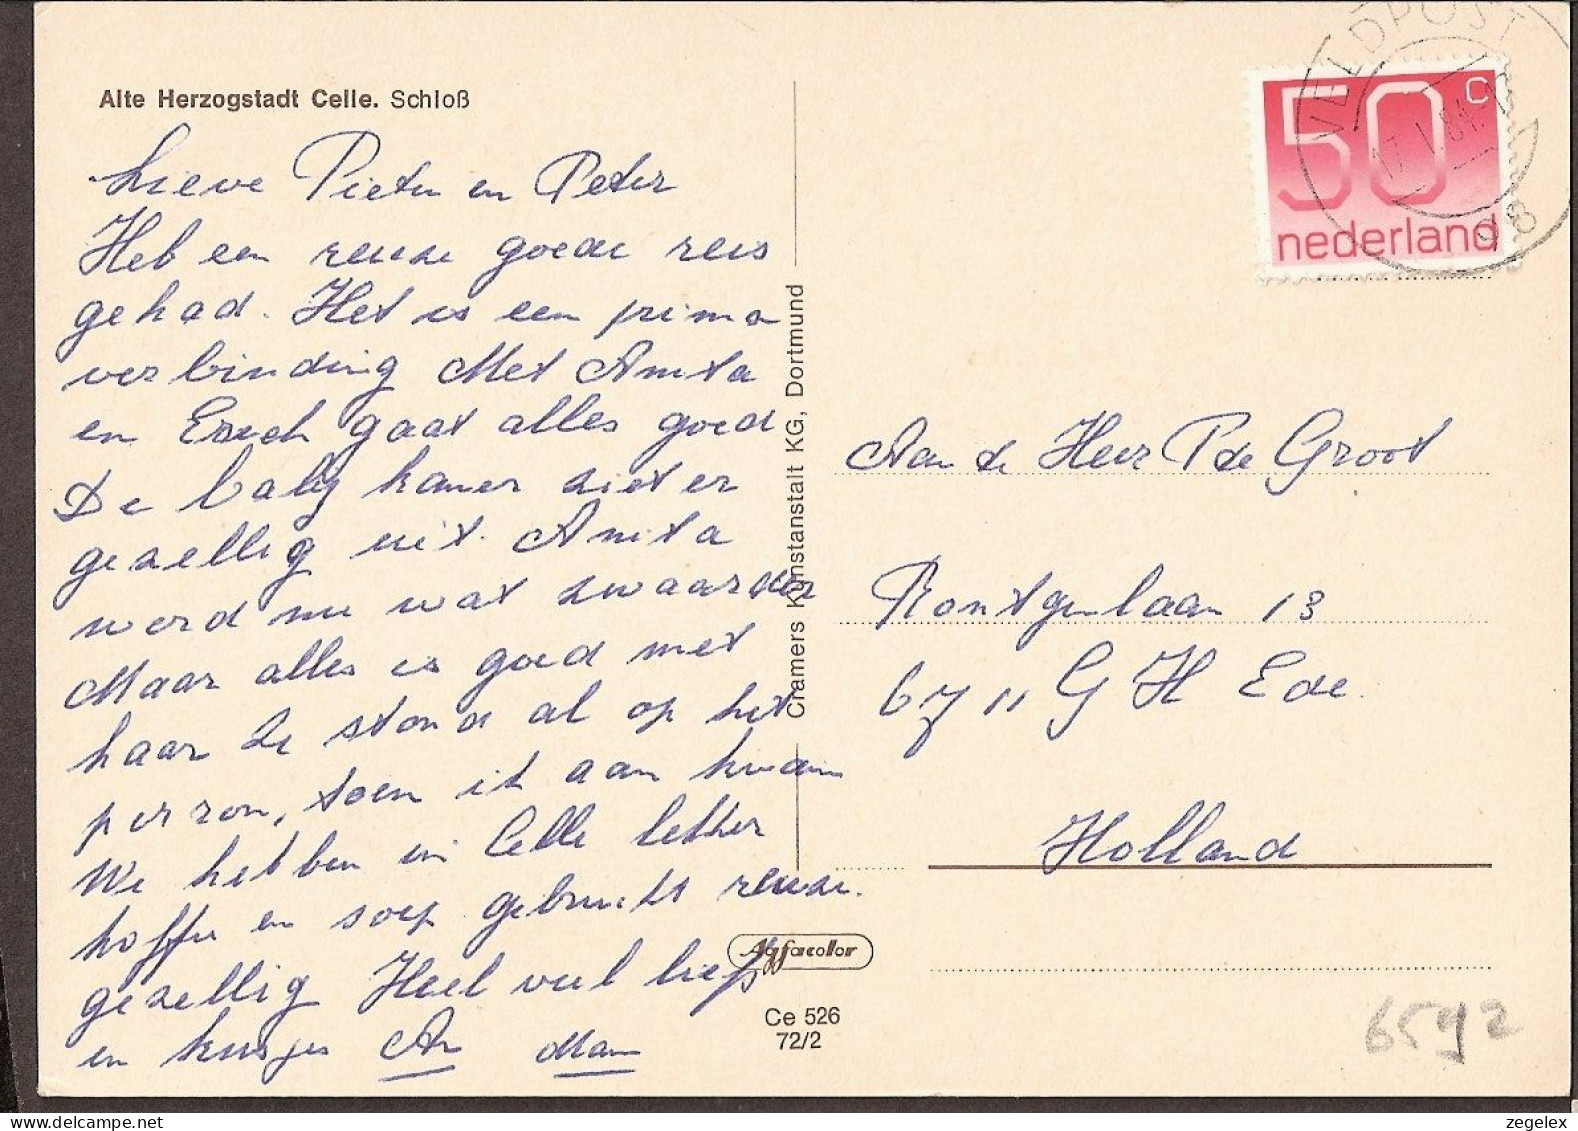 Alte Herzogstadt Celle. Schloß
Lieve Pieter en Peter
Heb een reuze goede reis
gehad. Het is een prima
verbinding Met Anita
en Erich gaat alles goed
De baby kamer ziet er
gezellig uit. Anita
word nu wat zwaarder
Maar alles is goed met
haar ze stond al op het
perron, toen ik aan kwam
We hebben in Celle lekker
koffie en soep gebruikt reuze.
gezellig Heel veel liefs
en kusjes Mam
Cramers Kunstanstalt KG, Dortmund
Agfacolor
Ce 526
72/2
VELDPOST
17.1.84
98
50 c
nederland
Aan de Heer P de Groot
Rontgenlaan 13
6711 G H Ede.
Holland
6592
zegelex